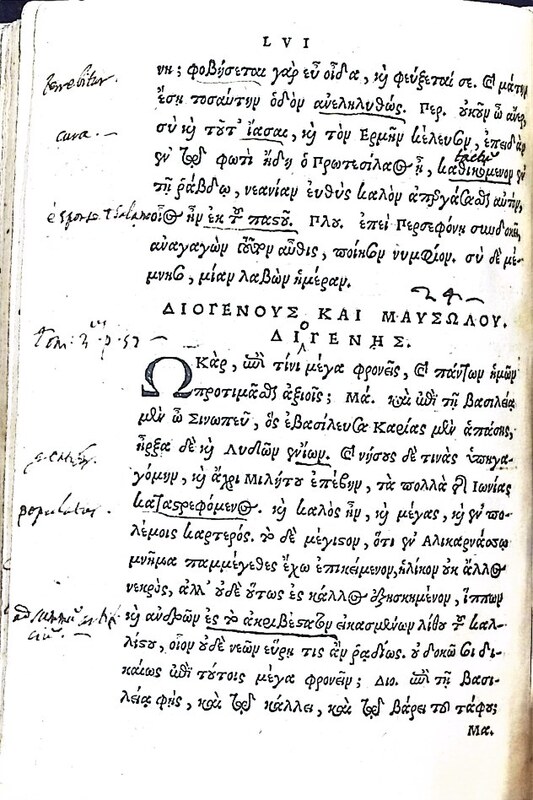 LVI
νη; φοβήσεται γὰρ εὖ οἶδα, καὶ φεύξεταί σε. καὶ μάτην
ἔσῃ τοσαύτην ὁδὸν ἀνεληλυθώς. Περ. οὐκοῦν ὦ ἄνερ,
σὺ καὶ τοῦτ' ἴασαι, καὶ τὸν Ερμῆν κέλευσον, ἐπειδὰν
ἐν τῷ φωτὶ ἤδη ὁ Πρωτεσίλαος ᾖ, καθικόμενον ἐν
τῇ ῥάβδῳ, νεανίαν εὐθὺς καλὸν ἀπεργάσασθαι αὐτὸν,
οἷος ἦν ἐκ τοῦ παστοῦ. Πλου. ἐπεὶ Περσεφόνῃ συνδοκεῖ,
ἀναγαγὼν τοῦτον αὖθις, ποίησον νυμφίον. σὺ δὲ μέ-
μνησο, μίαν λαβὼν ἡμέραν.
ΔΙΟΓΕΝΟΥΣ ΚΑΙ ΜΑΥΣΩΛΟΥ.
ΔΙΟΓΕΝΗΣ.
Ω ΚΑΡ, ἐπὶ τίνι μέγα φρονεῖς, καὶ πάντων ἡμῶν
προτιμᾶσθαι ἀξιοῖς; Μα. καὶ ἐπὶ τῇ βασιλείᾳ
μὲν ὦ Σινωπεῦ, ὃς ἐβασίλευσα Καρίας μὲν ἁπάσης,
ἦρξα δὲ καὶ Λυδῶν ἐνίων. καὶ νήσους δέ τινας ὑπηγα-
γόμην, καὶ ἄχρι Μιλήτου ἐπέβην, τὰ πολλὰ τῆς Ιωνίας
καταστρεφόμενος. καὶ καλὸς ἦν, καὶ μέγας, καὶ ἐν πο-
λέμοις καρτερός. τὸ δὲ μέγιστον, ὅτι ἐν Αλικαρνάσσῳ
μνῆμα παμμέγεθες ἔχω ἐπικείμενον, ἡλίκον οὐκ ἄλλος
νεκρὸς, ἀλλ' οὐδὲ οὕτως ἐς κάλλος ἐξησκημένον, ἵππων
καὶ ἀνδρῶν ἐς τὸ ἀκριβέστατον εἰκασμένων λίθου τοῦ καλ-
λίστου, οἷον οὐδὲ νεὼν εὕρῃ τις ἂν ῥᾳδίως. οὐ δοκῶ σοι δι-
καίως ἐπὶ τούτοις μέγα φρονεῖν; Διο. ἐπὶ τῇ βασι-
λείᾳ φῂς, καὶ τῷ κάλλει, καὶ τῷ βάρει τοῦ τάφου;
Μα.
terrebitur.
cura.
populatus.